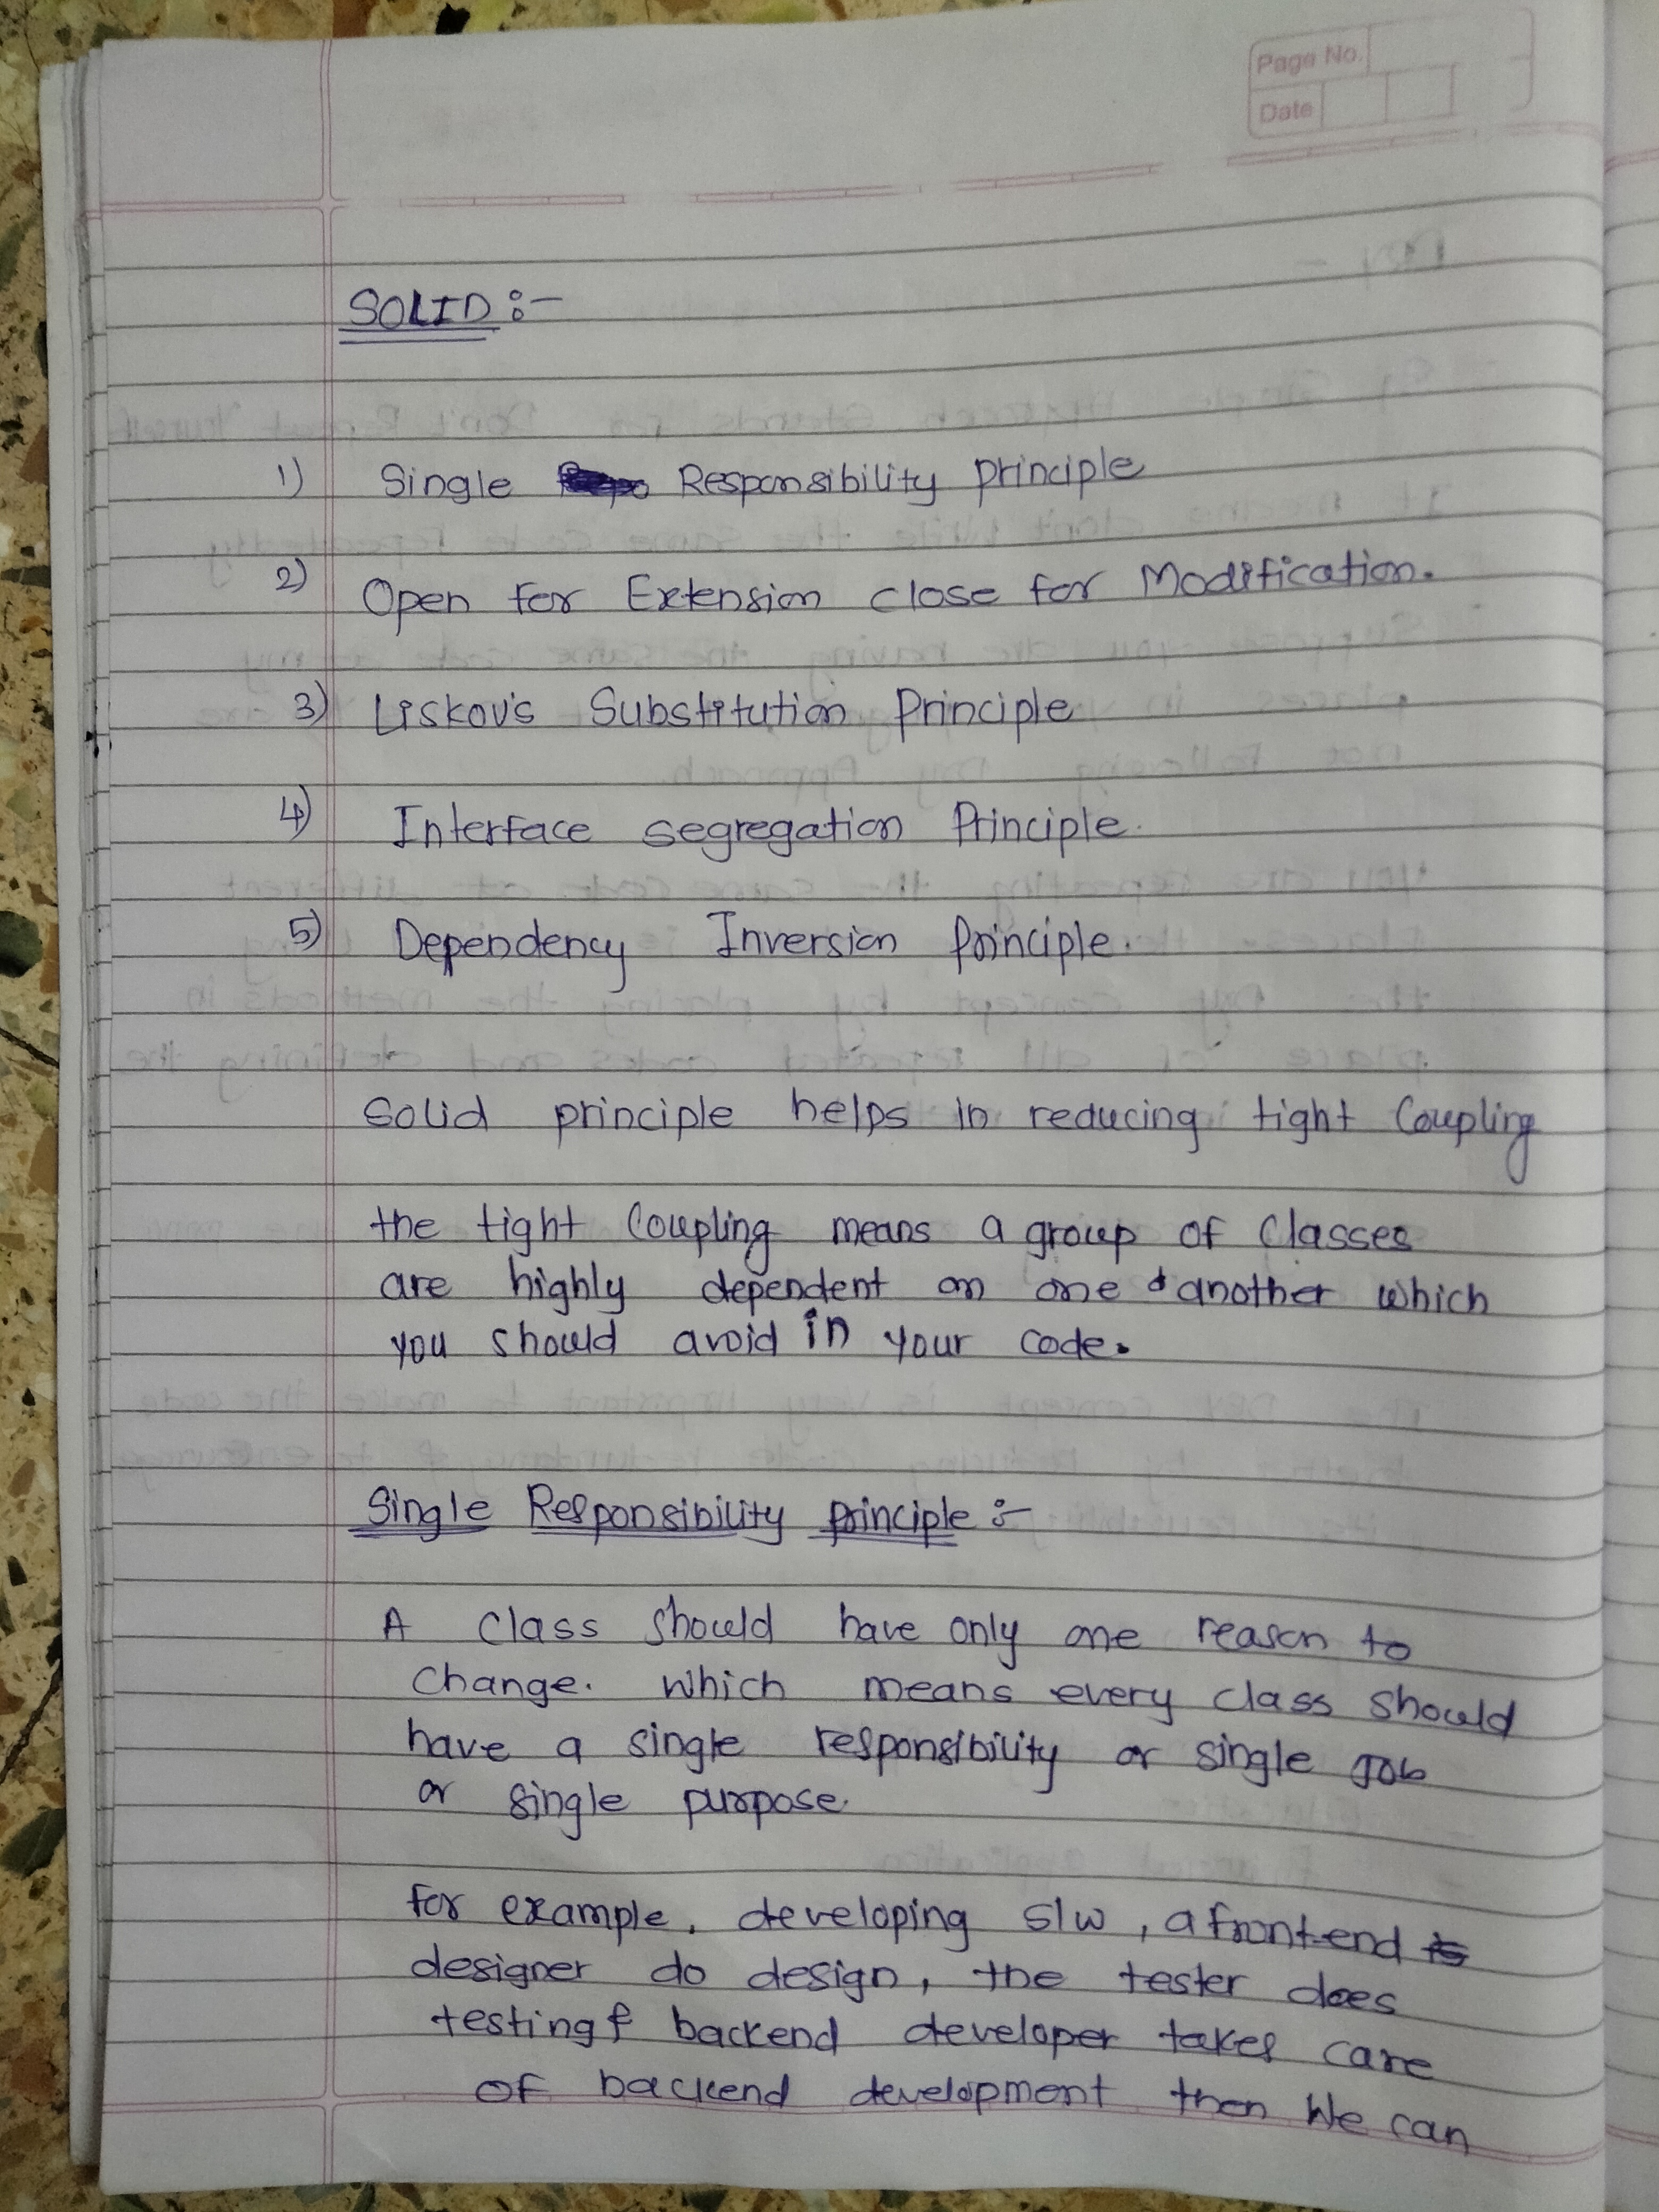 Page No.
Date
SOLID :-
1) Single Responsibility principle
2) Open for Extension close for Modification.
3) Liskov's Substitution Principle
4) Interface segregation Principle.
5) Dependency Inversion Principle.
Solid principle helps in reducing tight Coupling
the tight Coupling means a group of Classes
are highly dependent on one another which
you should avoid in your code.
Single Responsibility principle :-
A class should have only one reason to
Change. Which means every class should
have a single responsibility or single Job
or single purpose.
for example, developing s/w, a front-end
designer do design, the tester does
testing & backend developer takes care
of backend development then We can